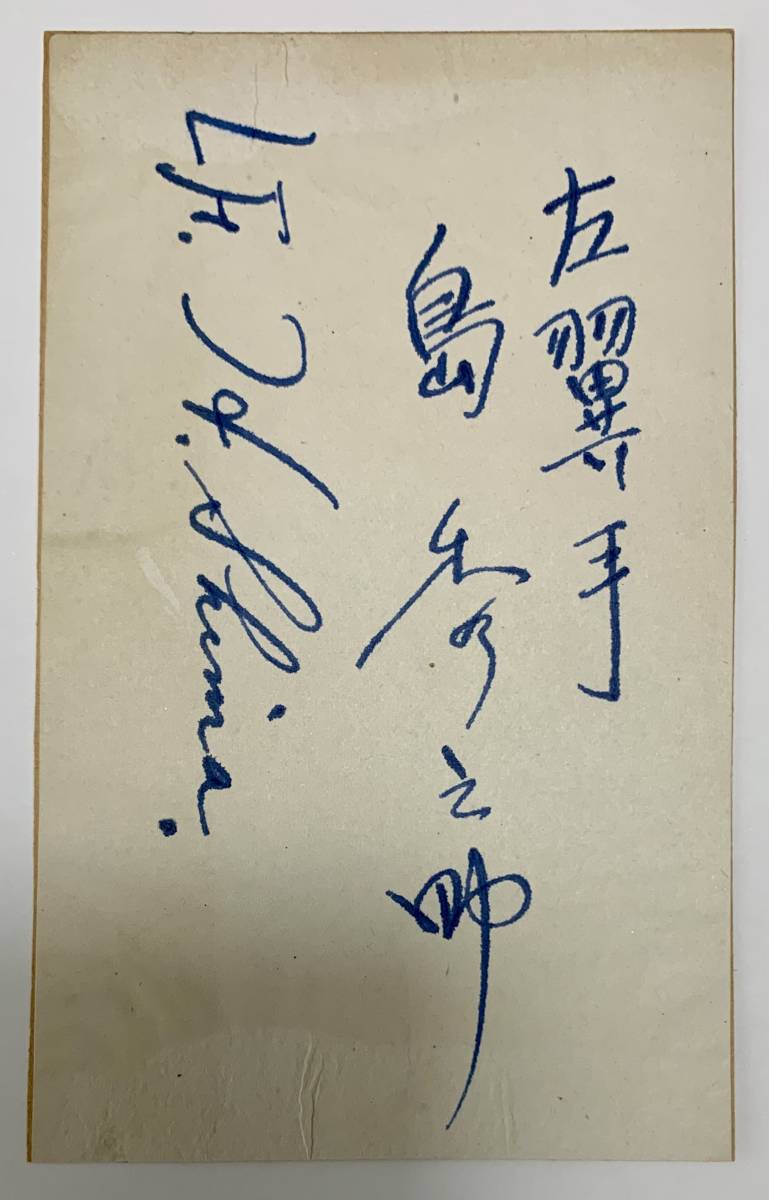 左翼手
島秀之助
LF. H. Shima.